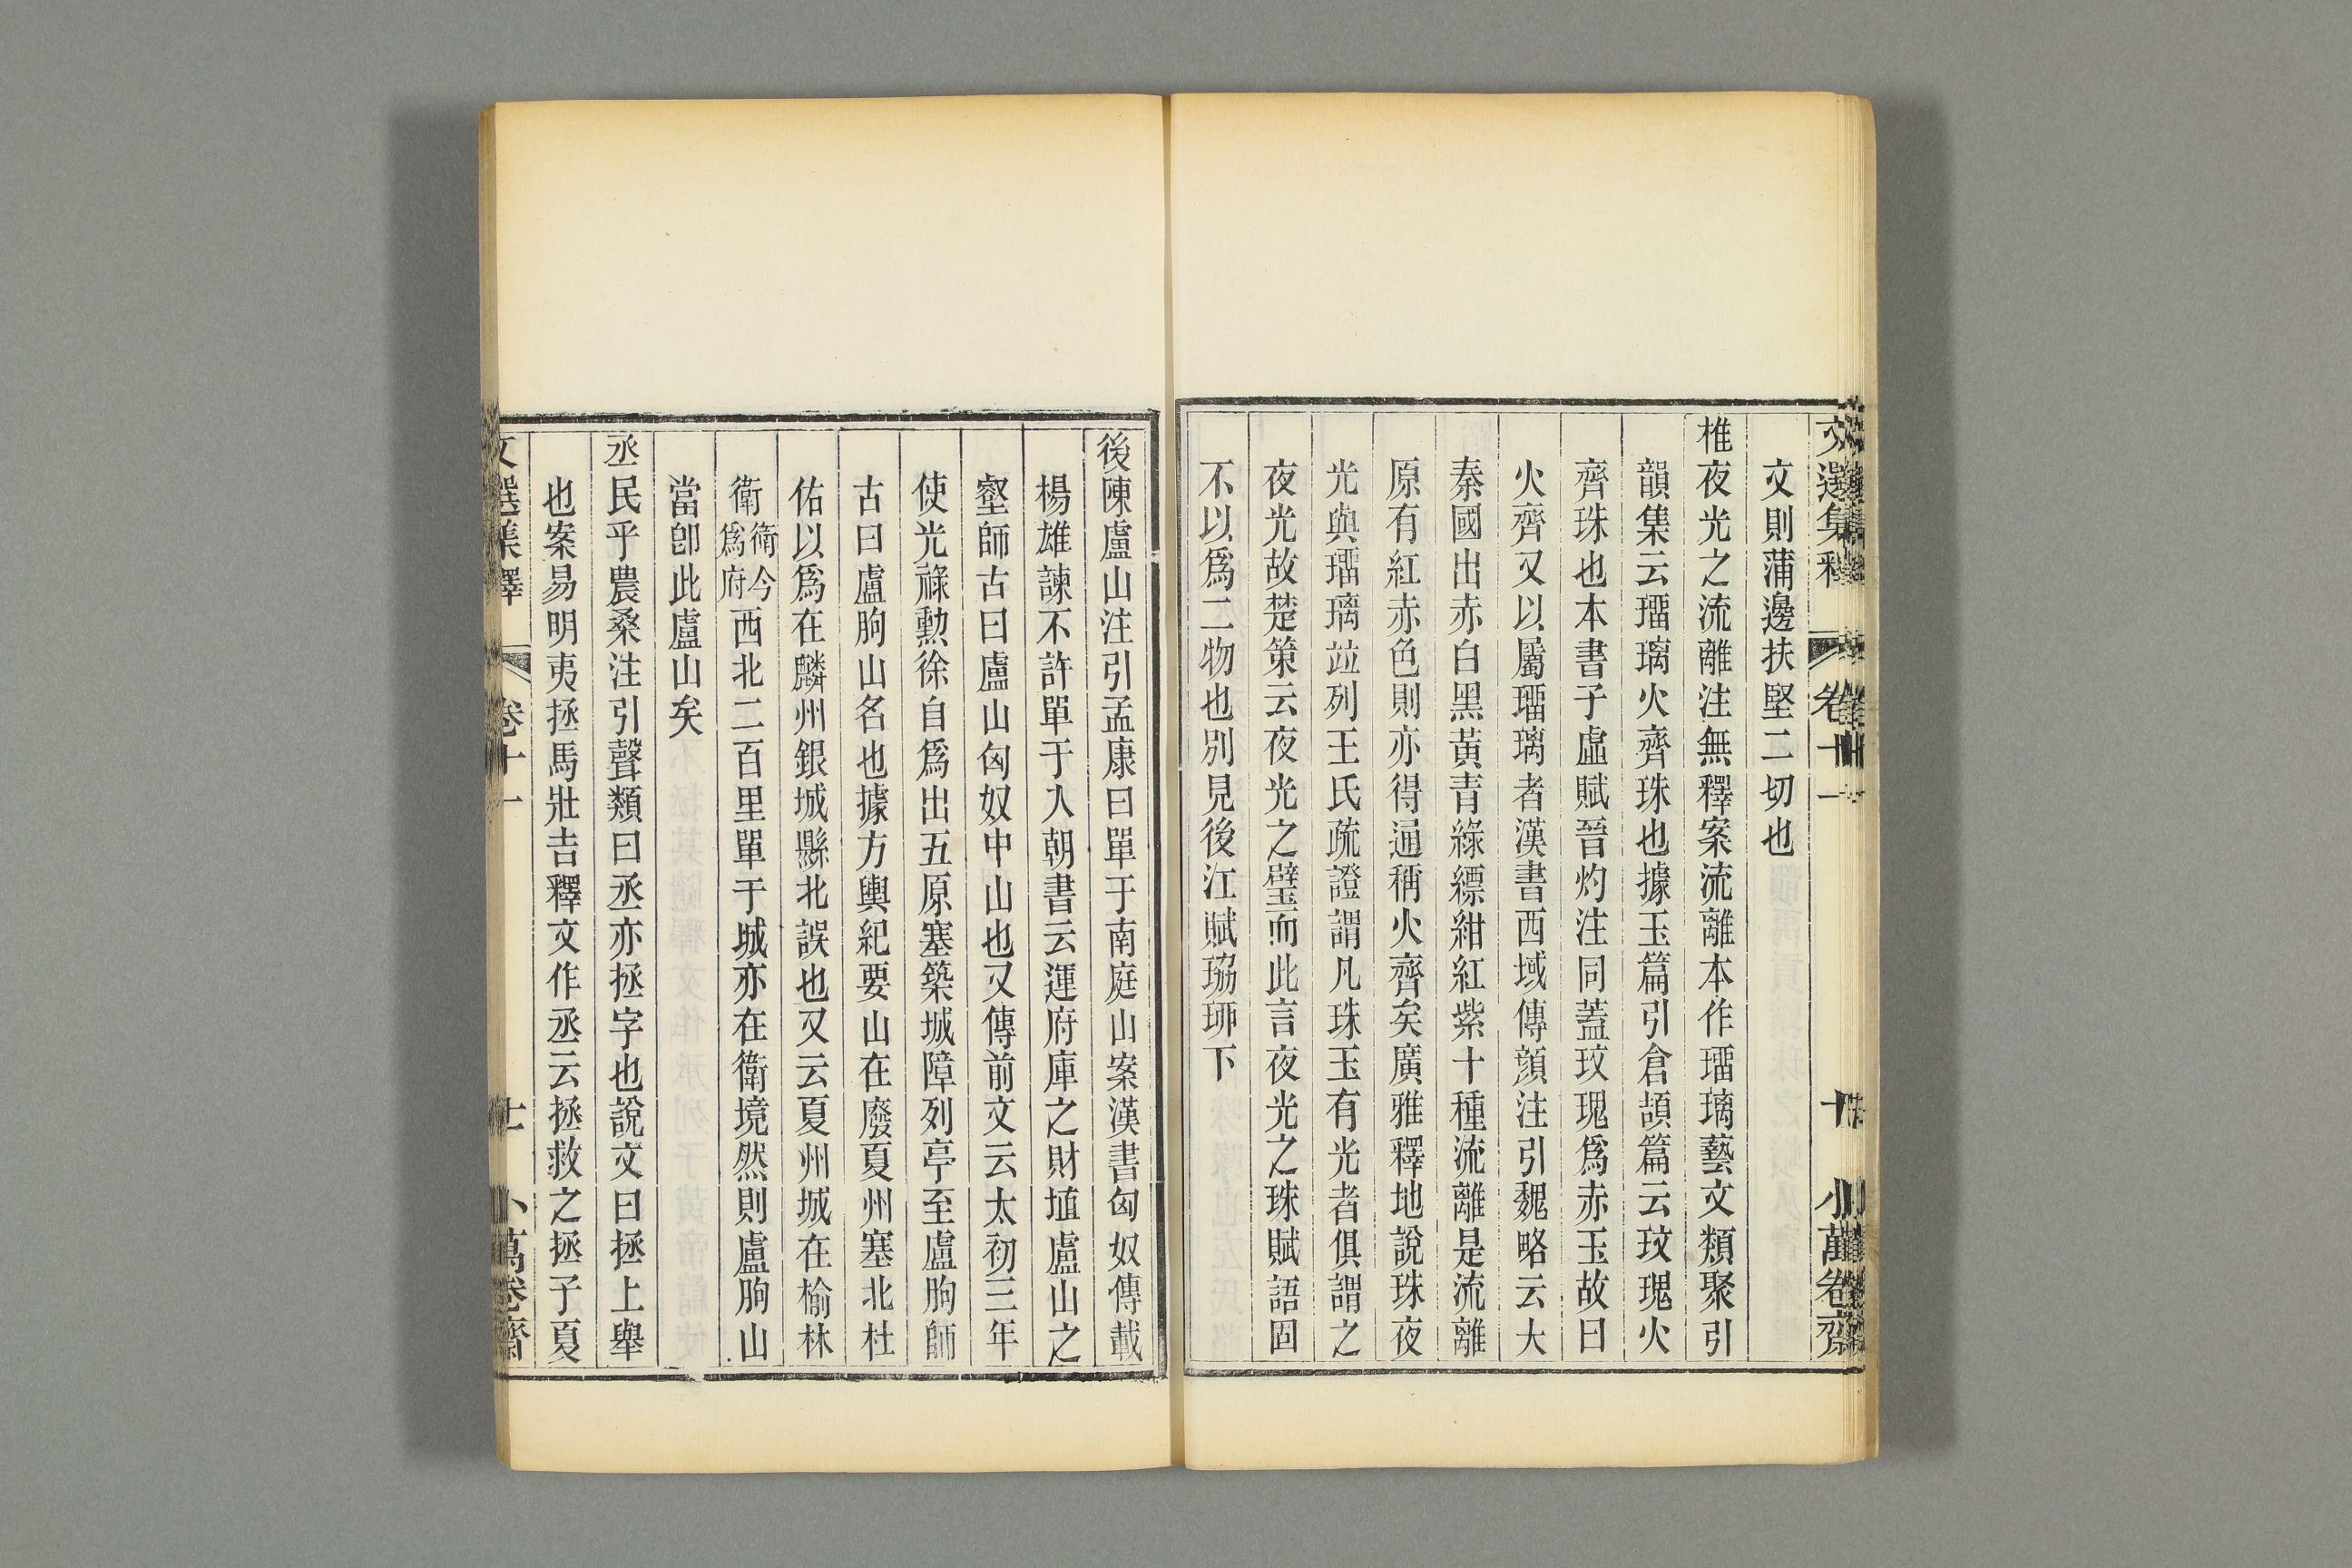 文選集釋 卷十一 十 小萬卷齋
文則蒲邊扶堅二切也
椎夜光之流離注無釋案流離本作瑠璃藝文類聚引
韻集云瑠璃火齊珠也據玉篇引倉頡篇云玟瑰火
齊珠也本書子虛賦晉灼注同蓋玟瑰爲赤玉故曰
火齊又以屬瑠璃者漢書西域傳顏注引魏略云大
秦國出赤白黑黃青綠縹紺紅紫十種流離是流離
原有紅赤色則亦得通稱火齊矣廣雅釋地說珠夜
光與瑠璃竝列王氏疏證謂凡珠玉有光者俱謂之
夜光故楚策云夜光之璧而此言夜光之珠賦語固
不以爲二物也別見後江賦珕珋下
後陳盧山注引孟康曰單于南庭山案漢書匈奴傳載
楊雄諫不許單于入朝書云運府庫之財塡盧山之
壑師古曰盧山匈奴中山也又傳前文云太初三年
使光祿勳徐自爲出五原塞築城障列亭至盧朐師
古曰盧朐山名也據方輿紀要山在廢夏州塞北杜
佑以爲在麟州銀城縣北誤也又云夏州城在榆林
衛衛今爲府西北二百里單于城亦在衛境然則盧朐山
當卽此盧山矣
丞民乎農桑注引聲類曰丞亦拯字也說文曰拯上舉
也案易明夷拯馬壯吉釋文作丞云拯救之拯子夏
文選集釋 卷十一 十一 小萬卷齋